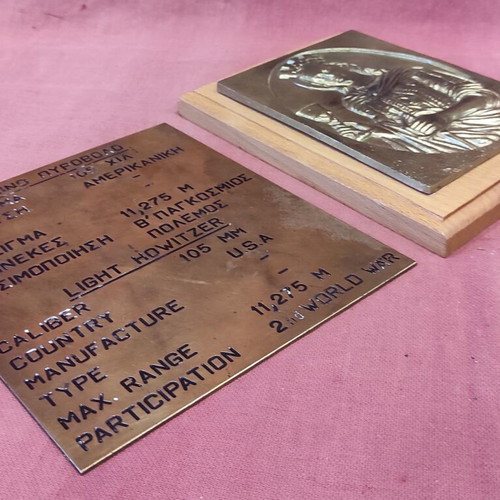 ΠΥΡΟΒΟΛΟ
ΑΜΕΡΙΚΑΝΙΚΗ
11,275 Μ
Β' ΠΑΓΚΟΣΜΙΟΣ
ΠΟΛΕΜΟΣ
LIGHT HOWITZER
CALIBER 105 MM
COUNTRY U.S.A
MANUFACTURE
TYPE -
MAX. RANGE 11,275 M
PARTICIPATION 2nd WORLD WAR